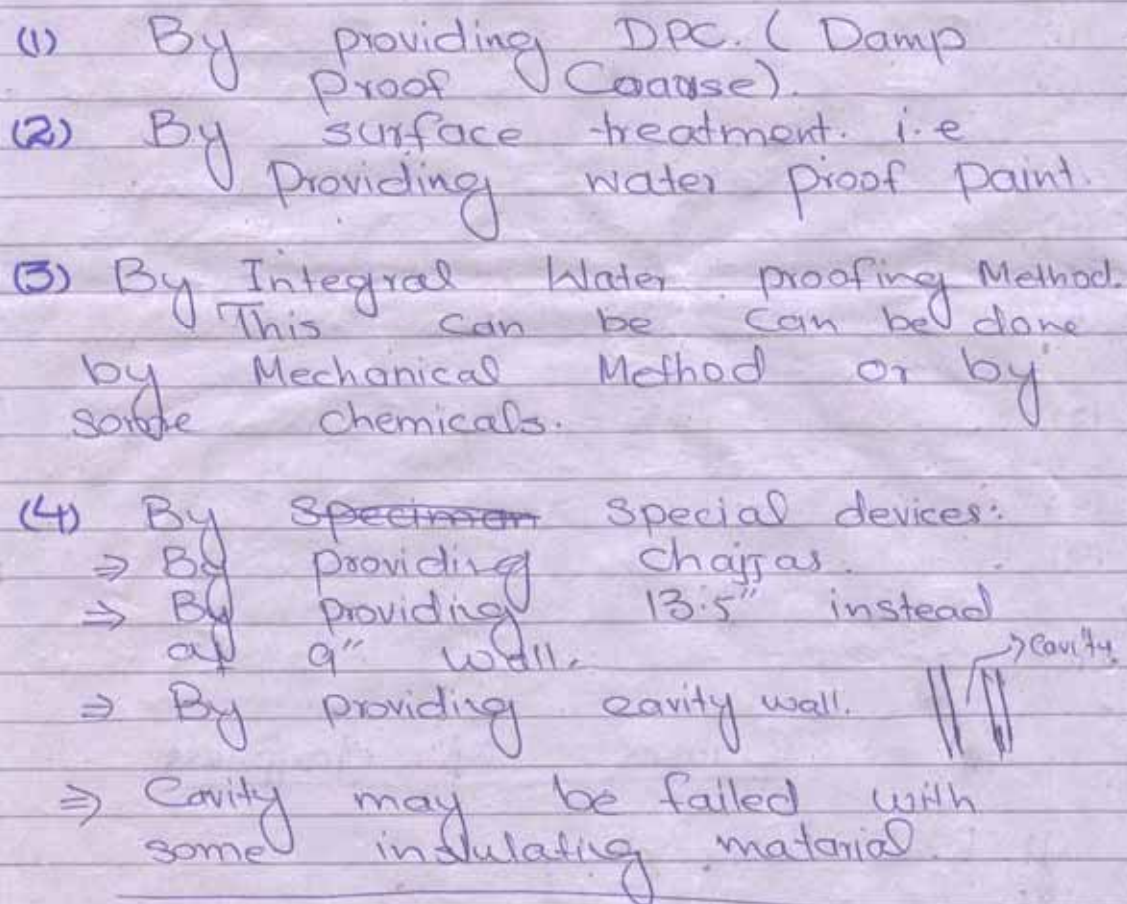 (1) By providing DPC. ( Damp
Proof Coause).
(2) By surface treatment. i.e
Providing water proof paint.
(3) By Integral Water proofing Method.
This can be can be done
by Mechanical Method or by
some chemicals.
(4) By Speciman special devices:
⇒ By providing chajjas.
⇒ By providing 13.5" instead
of 9" wall.
→ Cavity
⇒ By providing cavity wall.
⇒ Cavity may be failed with
some insulating matarial.